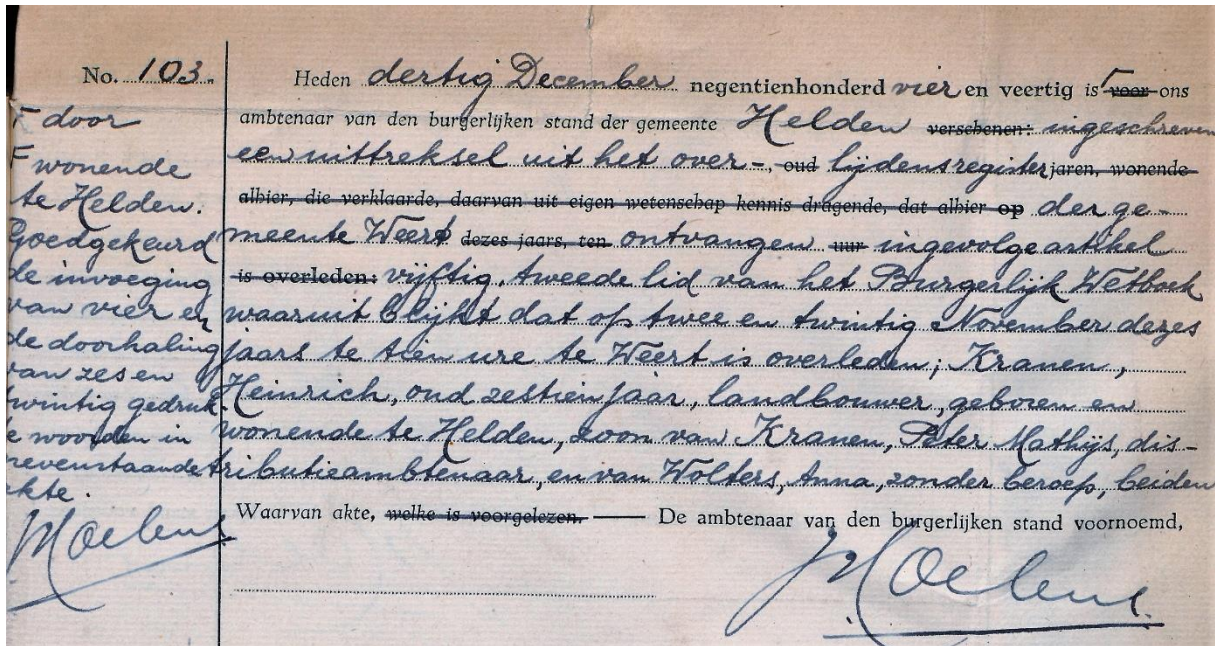 No. 103.
Γ door
F wonende
te Helden.
Goedgekeurd
de invoeging
van vier en
de doorhaling
van zes en
twintig gedruk-
te woorden in
nevenstaande
akte.
Heden dertig December negentienhonderd vier en veertig is Γ voor ons
ambtenaar van den burgerlijken stand der gemeente Helden verschenen: ingeschreven
een uittreksel uit het over-, oud lijdensregister jaren, wonende
alhier, die verklaarde, daarvan uit eigen wetenschap kennis dragende, dat alhier op der ge-
meente Weert dezes jaars, ten ontvangen uur ingevolge artikel
is overleden: vijftig, tweede lid van het Burgerlijk Wetboek
waaruit blijkt dat op twee en twintig November dezes
jaars te tien ure te Weert is overleden; Kranen,
Heinrich, oud zestien jaar, landbouwer, geboren en
wonende te Helden, zoon van Kranen, Peter Mathijs, dis-
tributieambtenaar, en van Wolters, Anna, zonder beroep, beiden
Waarvan akte, welke is voorgelezen. De ambtenaar van den burgerlijken stand voornoemd,